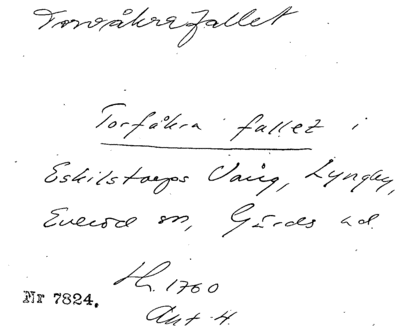 Torvåkrafallet
Torfåkra fallet i
Eskilstorps Vång, Lyngby,
Everöd sn, Gärds hd.
H. 1760
Akt 4.
Nr 7824.